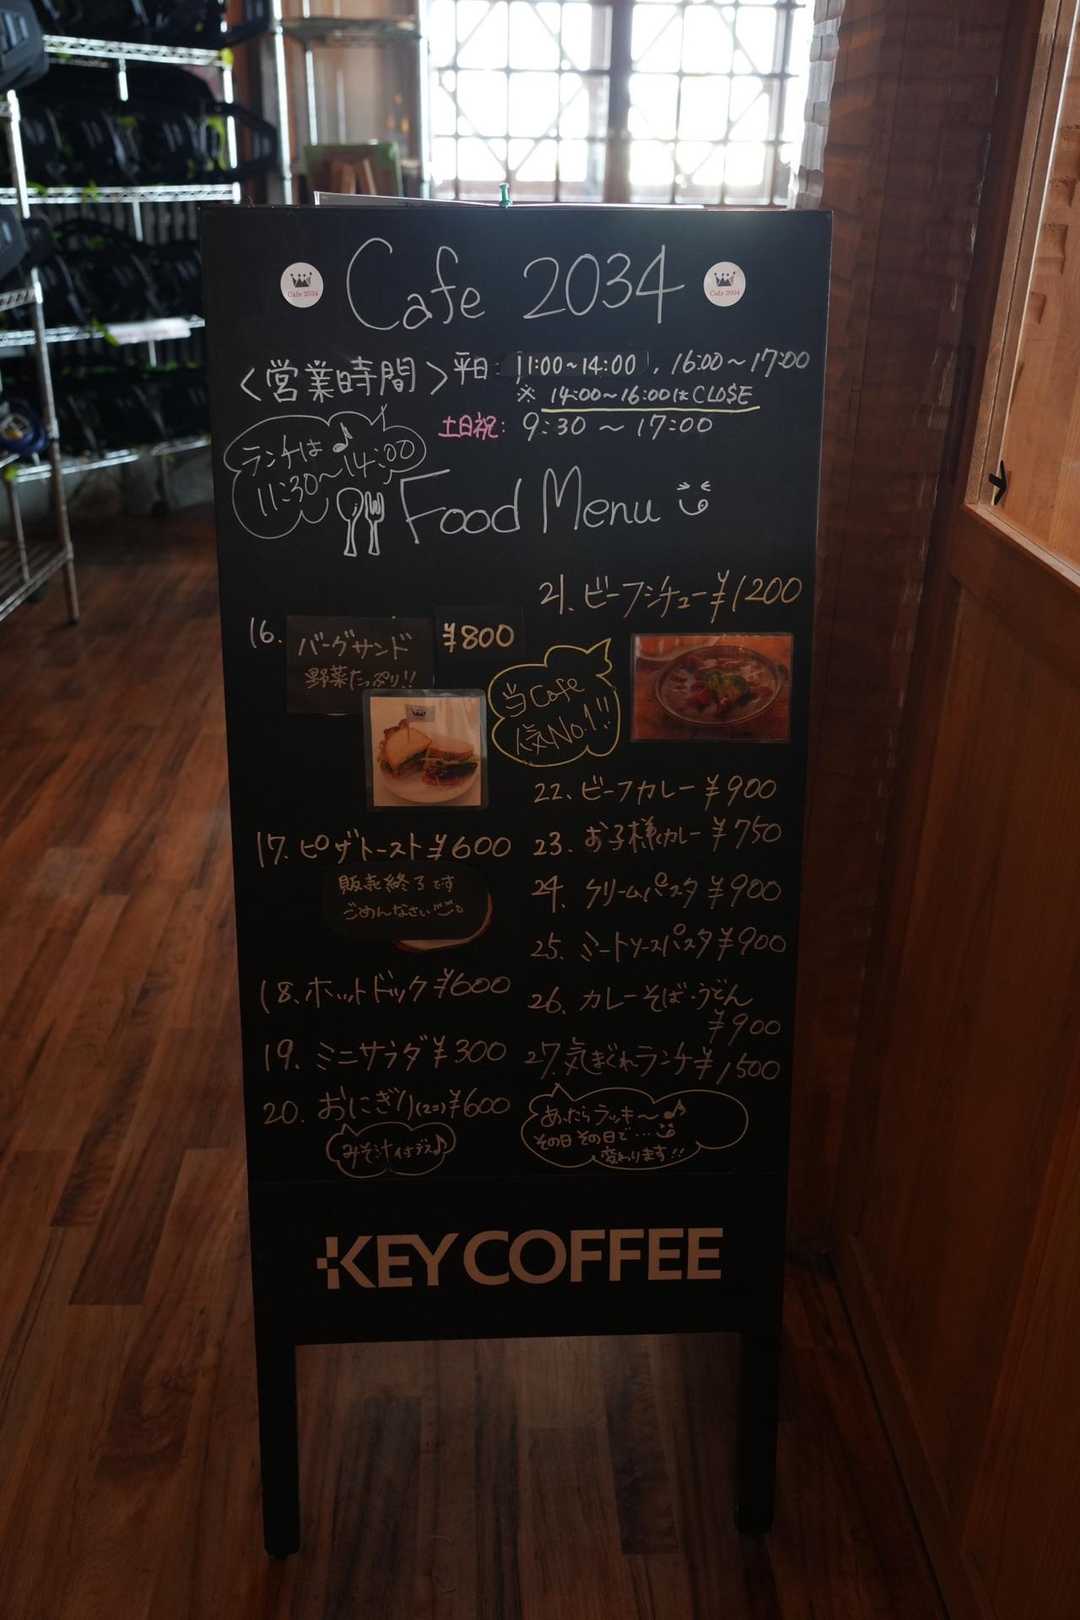 Cafe 2034
Cafe 2034
Cafe 2034
<営業時間> 平日: 11:00~14:00, 16:00~17:00
※ 14:00~16:00はCLOSE
土日祝: 9:30 ~ 17:00
ランチは♪
11:30~14:00
Food Menu
16. バーグサンド ¥800
野菜たっぷり!!
17. ピザトースト ¥600
販売終了です
ごめんなさい
18. ホットドック ¥600
19. ミニサラダ ¥300
20. おにぎり(2コ) ¥600
みそ汁付デス♪
21. ビーフシチュー ¥1200
当Cafe
人気No.1!!
22. ビーフカレー ¥900
23. お子様カレー ¥750
24. クリームパスタ ¥900
25. ミートソースパスタ ¥900
26. カレーそば・うどん
¥900
27. 気まぐれランチ ¥1500
あったらラッキ〜♪
その日その日で…
変わります!!
KEY COFFEE